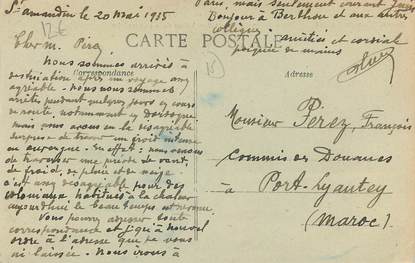 St amandin le 20 Mai 1935
Paris, mais seulement courant Juin
Bonjour à Berthou et aux autres
collègues amitiés et cordiale
poignée de mains
12f
Cher M. Pérez
CARTE POSTALE
Correspondance
Adresse
Nous sommes arrivés à
destination après un voyage
agréable. Nous nous sommes
arrêtés pendant quelques jours en cours
de route, notamment en Dordogne
mais nous avons eu la désagréable
surprise de trouver un froid intense
en auvergne. En effet: nous venons
de traverser une période de vent,
de froid, de pluie et de neige
c'est désagréable pour des
coloniaux habitués à la chaleur
aujourd'hui le beau temps est revenu
Vous pouvez adresser toute
correspondance jusqu'à nouvel
ordre à l'adresse que je vous
ai laissée. Nous irons à
Monsieur Pérez, François
Commis des Douanes
à Port-Lyautey
(Maroc)